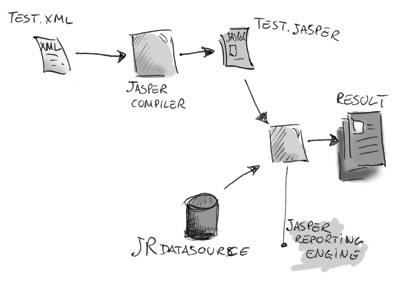 TEST.XML
XML
JASPER
COMPILER
TEST.JASPER
JASPER
RESULT
JR DATASOURCE
JASPER
REPORTING
ENGINE